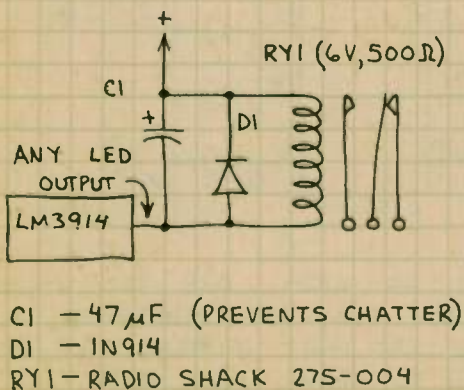 +
RY1 (6V, 500Ω)
C1
+
D1
ANY LED
OUTPUT
LM3914
C1 — 47µF (PREVENTS CHATTER)
D1 — 1N914
RY1 — RADIO SHACK 275-004